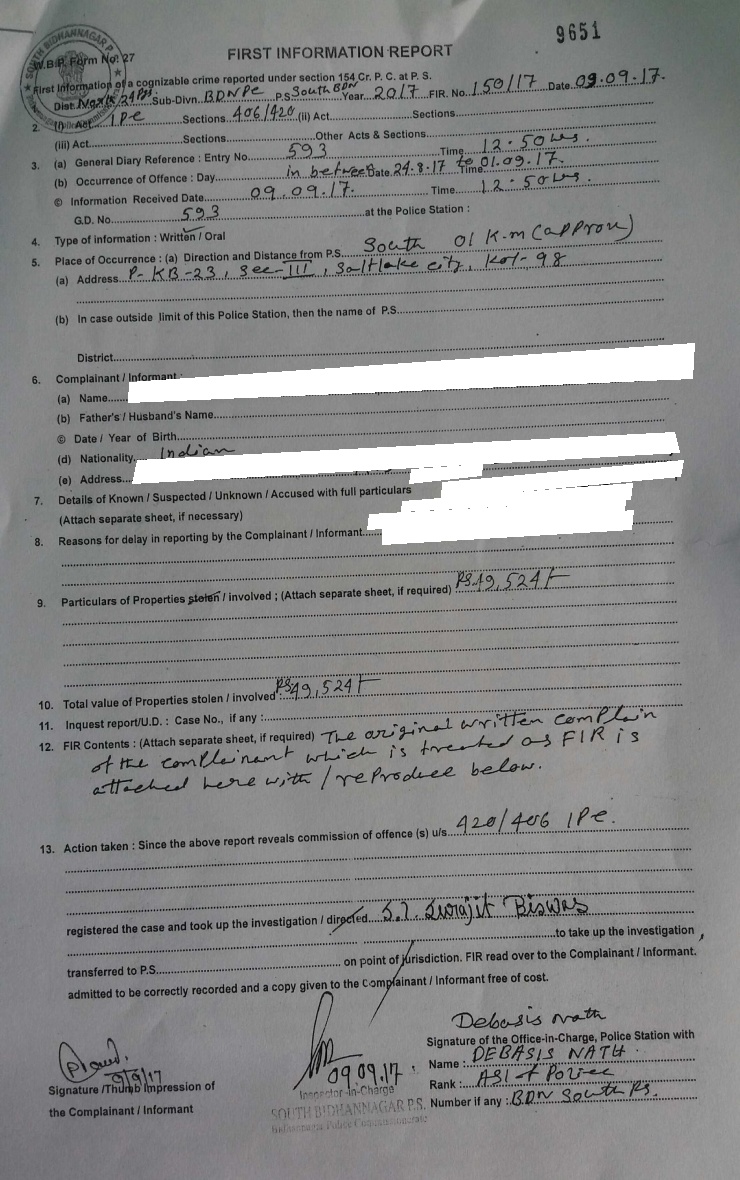 9651
SOUTH BIDHANNAGAR P.S.
W.B.P. Form No. 27
FIRST INFORMATION REPORT
First Information of a cognizable crime reported under section 154 Cr. P. C. at P. S.
Dist. North 24 Pgs Sub-Divn. BDNPC P.S. South BDN Year 2017 FIR. No. 150/17 Date 09.09.17.
2. (i) Act IPC Sections 406/420 (ii) Act Sections
(iii) Act Sections Other Acts & Sections
3. (a) General Diary Reference : Entry No. 593 Time 12.50 hrs.
(b) Occurrence of Offence : Day in between Date 24.8.17 to 01.09.17. Time
© Information Received Date 09.09.17. Time 12.50 hrs.
G.D. No. 593 at the Police Station :
4. Type of information : Written / Oral
5. Place of Occurrence : (a) Direction and Distance from P.S. South 01 K.m (approx)
(a) Address P- KB-23, Sec-III, Saltlake city, Kol-98
(b) In case outside limit of this Police Station, then the name of P.S.
District
6. Complainant / Informant :
(a) Name
(b) Father's / Husband's Name
© Date / Year of Birth
(d) Nationality Indian
(e) Address
7. Details of Known / Suspected / Unknown / Accused with full particulars
(Attach separate sheet, if necessary)
8. Reasons for delay in reporting by the Complainant / Informant
9. Particulars of Properties stolen / involved ; (Attach separate sheet, if required) Rs.49,524/-
10. Total value of Properties stolen / involved : Rs.49,524/-
11. Inquest report/U.D. : Case No., if any :
12. FIR Contents : (Attach separate sheet, if required) The original written complain
of the complainant which is treated as FIR is
attached here with / reproduce below.
13. Action taken : Since the above report reveals commission of offence (s) u/s 420/406 IPC.
registered the case and took up the investigation / directed S.I. Surajit Biswas
to take up the investigation ,
transferred to P.S. on point of jurisdiction. FIR read over to the Complainant / Informant.
admitted to be correctly recorded and a copy given to the Complainant / Informant free of cost.
Debasis Nath
Signature of the Office-in-Charge, Police Station with
Name : DEBASIS NATH.
Rank : ASI of Police
Number if any : BDN South PS.
9/9/17
Signature /Thumb Impression of
the Complainant / Informant
09.09.17.
Inspector-in-Charge
SOUTH BIDHANNAGAR P.S.
Bidhannagar Police Commissionerate